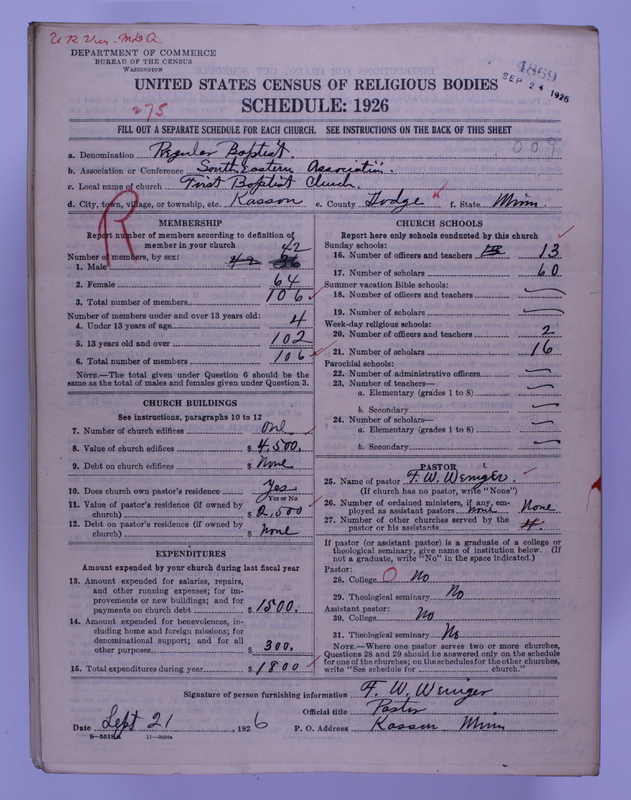 DEPARTMENT OF COMMERCE
BUREAU OF THE CENSUS
WASHINGTON
4869
SEP 24 1926
UNITED STATES CENSUS OF RELIGIOUS BODIES
SCHEDULE: 1926
275
FILL OUT A SEPARATE SCHEDULE FOR EACH CHURCH. SEE INSTRUCTIONS ON THE BACK OF THIS SHEET
009
a. Denomination Regular Baptist.
b. Association or Conference South Eastern Association.
c. Local name of church First Baptist Church.
d. City, town, village, or township, etc. Kasson e. County Dodge f. State Minn
R
MEMBERSHIP
Report number of members according to definition of
member in your church
Number of members, by sex: 42
1. Male 42 36
2. Female 64
3. Total number of members 106
Number of members under and over 13 years old:
4. Under 13 years of age 4
5. 13 years old and over 102
6. Total number of members 106
NOTE.—The total given under Question 6 should be the
same as the total of males and females given under Question 3.
CHURCH BUILDINGS
See instructions, paragraphs 10 to 12
7. Number of church edifices one
8. Value of church edifices $ 4,500.
9. Debt on church edifices $ None
10. Does church own pastor's residence Yes
Yes or No
11. Value of pastor's residence (if owned by
church) $ 2,500
12. Debt on pastor's residence (if owned by
church) $ None
EXPENDITURES
Amount expended by your church during last fiscal year
13. Amount expended for salaries, repairs,
and other running expenses; for im-
provements or new buildings; and for
payments on church debt $ 1500.
14. Amount expended for benevolences, in-
cluding home and foreign missions; for
denominational support; and for all
other purposes $ 300.
15. Total expenditures during year $ 1800
CHURCH SCHOOLS
Report here only schools conducted by this church
Sunday schools:
16. Number of officers and teachers 13 13
17. Number of scholars 60
Summer vacation Bible schools:
18. Number of officers and teachers —
19. Number of scholars —
Week-day religious schools:
20. Number of officers and teachers 2
21. Number of scholars 16
Parochial schools:
22. Number of administrative officers —
23. Number of teachers—
a. Elementary (grades 1 to 8) —
b. Secondary —
24. Number of scholars—
a. Elementary (grades 1 to 8) —
b. Secondary —
PASTOR
25. Name of pastor F. W. Weniger.
(If church has no pastor, write "None")
26. Number of ordained ministers, if any, em-
ployed as assistant pastors none None
27. Number of other churches served by the
pastor or his assistants 4.
If pastor (or assistant pastor) is a graduate of a college or
theological seminary, give name of institution below. (If
not a graduate, write "No" in the space indicated.)
Pastor:
28. College No
29. Theological seminary No
Assistant pastor:
30. College No
31. Theological seminary No
NOTE.—Where one pastor serves two or more churches,
Questions 28 and 29 should be answered only on the schedule
for one of the churches; on the schedules for the other churches,
write "See schedule for church."
Signature of person furnishing information F. W. Weniger
Official title Pastor
Date Sept 21, 1926 P. O. Address Kasson Minn